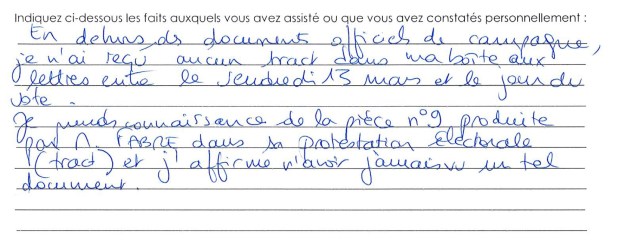 Indiquez ci-dessous les faits auxquels vous avez assisté ou que vous avez constatés personnellement :
En dehors ds documents officiels de campagne,
je n'ai reçu aucun tract dans ma boîte aux
lettres entre le vendredi 13 mars et le jour du
vote.
Je prends connaissance de la pièce n°9 produite
par M. FABRE dans sa Protestation Electorale
(tract) et j'affirme n'avoir jamais vu un tel
document.